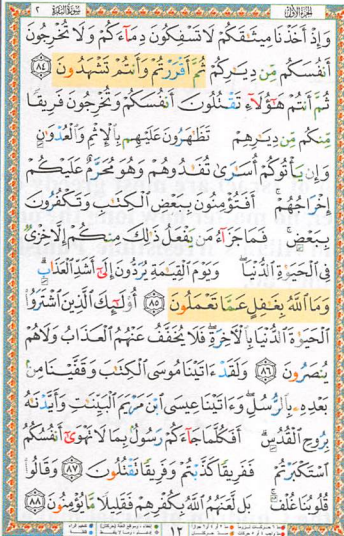 الجزء الأول سورة البقرة ٢
وَإِذْ أَخَذْنَا مِيثَـٰقَكُمْ لَا تَسْفِكُونَ دِمَآءَكُمْ وَلَا تُخْرِجُونَ
أَنفُسَكُم مِّن دِيَـٰرِكُمْ ثُمَّ أَقْرَرْتُمْ وَأَنتُمْ تَشْهَدُونَ ٨٤
ثُمَّ أَنتُمْ هَـٰٓؤُلَآءِ تَقْتُلُونَ أَنفُسَكُمْ وَتُخْرِجُونَ فَرِيقًا
مِّنكُم مِّن دِيَـٰرِهِمْ تَظَـٰهَرُونَ عَلَيْهِم بِٱلْإِثْمِ وَٱلْعُدْوَٰنِ
وَإِن يَأْتُوكُمْ أُسَـٰرَىٰ تُفَـٰدُوهُمْ وَهُوَ مُحَرَّمٌ عَلَيْكُمْ
إِخْرَاجُهُمْ ۚ أَفَتُؤْمِنُونَ بِبَعْضِ ٱلْكِتَـٰبِ وَتَكْفُرُونَ
بِبَعْضٍ ۚ فَمَا جَزَآءُ مَن يَفْعَلُ ذَٰلِكَ مِنكُمْ إِلَّا خِزْىٌ
فِى ٱلْحَيَوٰةِ ٱلدُّنْيَا ۖ وَيَوْمَ ٱلْقِيَـٰمَةِ يُرَدُّونَ إِلَىٰٓ أَشَدِّ ٱلْعَذَابِ ۗ
وَمَا ٱللَّهُ بِغَـٰفِلٍ عَمَّا تَعْمَلُونَ ٨٥ أُو۟لَـٰٓئِكَ ٱلَّذِينَ ٱشْتَرَوُا۟
ٱلْحَيَوٰةَ ٱلدُّنْيَا بِٱلْـَٔاخِرَةِ ۖ فَلَا يُخَفَّفُ عَنْهُمُ ٱلْعَذَابُ وَلَا هُمْ
يُنصَرُونَ ٨٦ وَلَقَدْ ءَاتَيْنَا مُوسَى ٱلْكِتَـٰبَ وَقَفَّيْنَا مِنۢ
بَعْدِهِۦ بِٱلرُّسُلِ ۖ وَءَاتَيْنَا عِيسَى ٱبْنَ مَرْيَمَ ٱلْبَيِّنَـٰتِ وَأَيَّدْنَـٰهُ
بِرُوحِ ٱلْقُدُسِ ۗ أَفَكُلَّمَا جَآءَكُمْ رَسُولٌۢ بِمَا لَا تَهْوَىٰٓ أَنفُسُكُمُ
ٱسْتَكْبَرْتُمْ فَفَرِيقًا كَذَّبْتُمْ وَفَرِيقًا تَقْتُلُونَ ٨٧ وَقَالُوا۟
قُلُوبُنَا غُلْفٌۢ ۚ بَل لَّعَنَهُمُ ٱللَّهُ بِكُفْرِهِمْ فَقَلِيلًا مَّا يُؤْمِنُونَ ٨٨
١٣